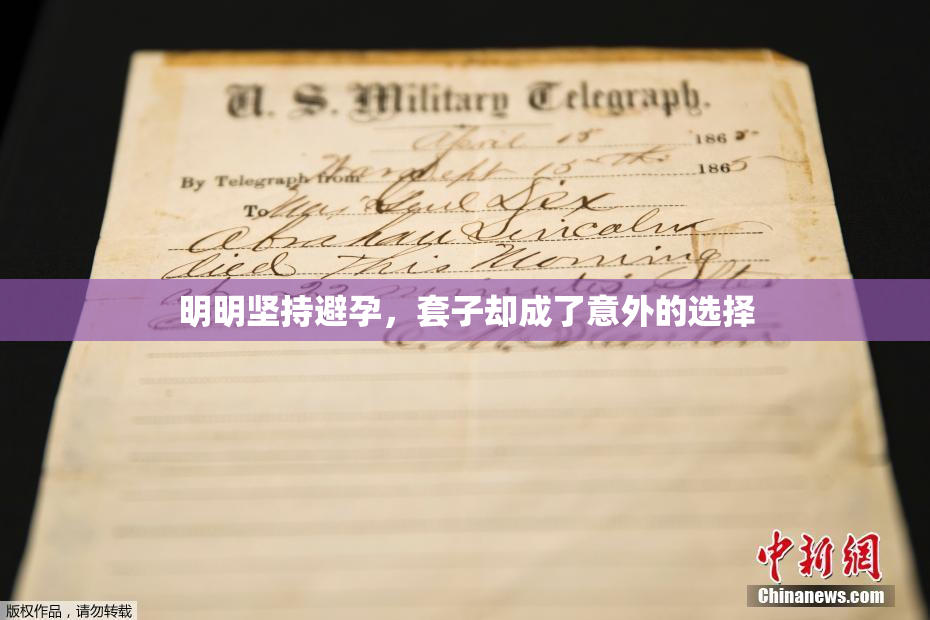 U. S. Military Telegraph.
April 15 1865
By Telegraph from War Dept 15th 1865
To Maj Genl Dix
Abraham Lincoln
died this Morning
at 22 minutes after
明明坚持避孕，套子却成了意外的选择
中新網
Chinanews.com
版权作品，请勿转载